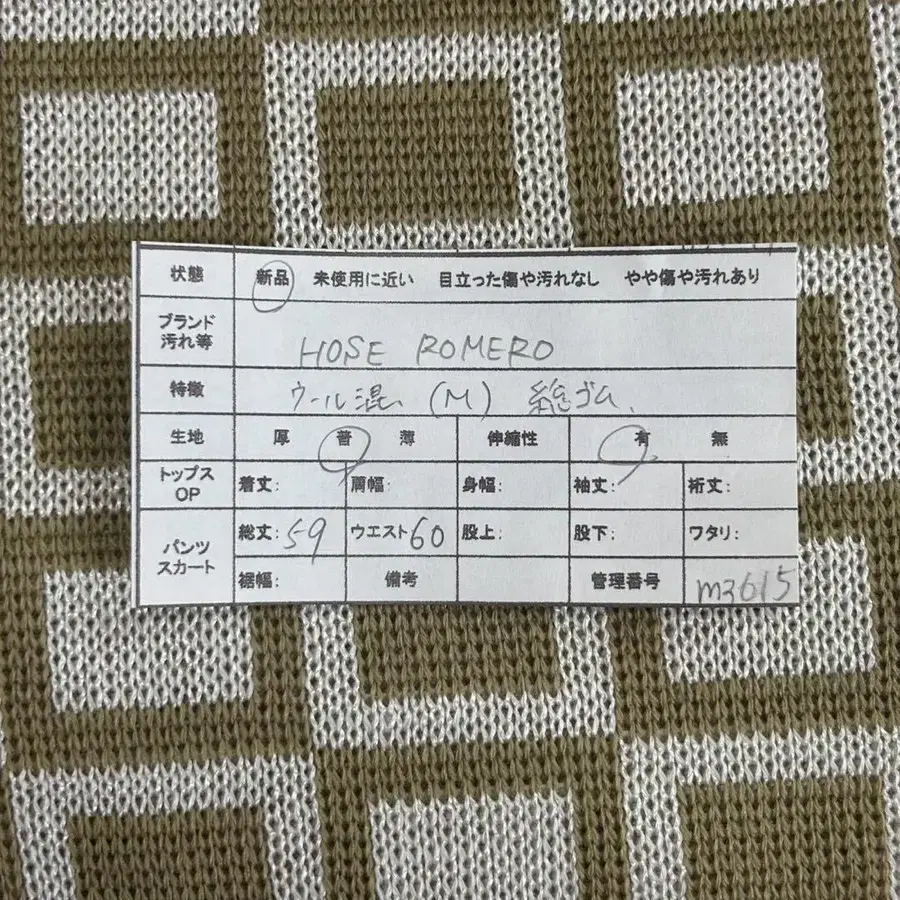 状態 新品 未使用に近い 目立った傷や汚れなし やや傷や汚れあり
ブランド 汚れ等 HOSE ROMERO
特徴 ウール混 (M) 総ゴム
生地 厚 普 薄 伸縮性 有 無
トップス OP 着丈: 肩幅: 身幅: 袖丈: 裄丈:
パンツ スカート 総丈: 59 ウエスト 60 股上: 股下: ワタリ:
裾幅: 備考 管理番号 m3615